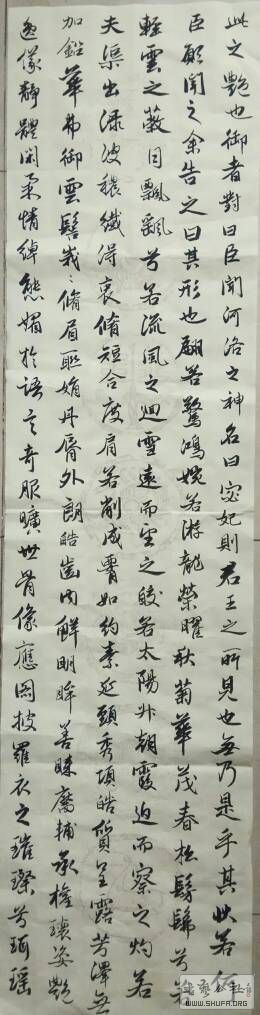 此之艷也御者對曰臣聞河洛之神名曰宓妃則君王之所見也無乃是乎其狀若何
臣願聞之余告之曰其形也翩若驚鴻婉若游龍榮曜秋菊華茂春松髣髴兮若
輕雲之蔽日飄飄兮若流風之迴雪遠而望之皎若太陽升朝霞迫而察之灼若
夫渠出淥波穠纖得衷脩短合度肩若削成腰如約素延頸秀項皓質呈露芳澤無
加鉛華弗御雲髻峩峩脩眉聯娟丹脣外朗皓齒內鮮明眸善睞靨輔承權瓌姿艷
逸儀靜體閑柔情綽態媚於語言奇服曠世骨像應圖披羅衣之璀璨兮珥瑤
WWW.SHUFA.ORG